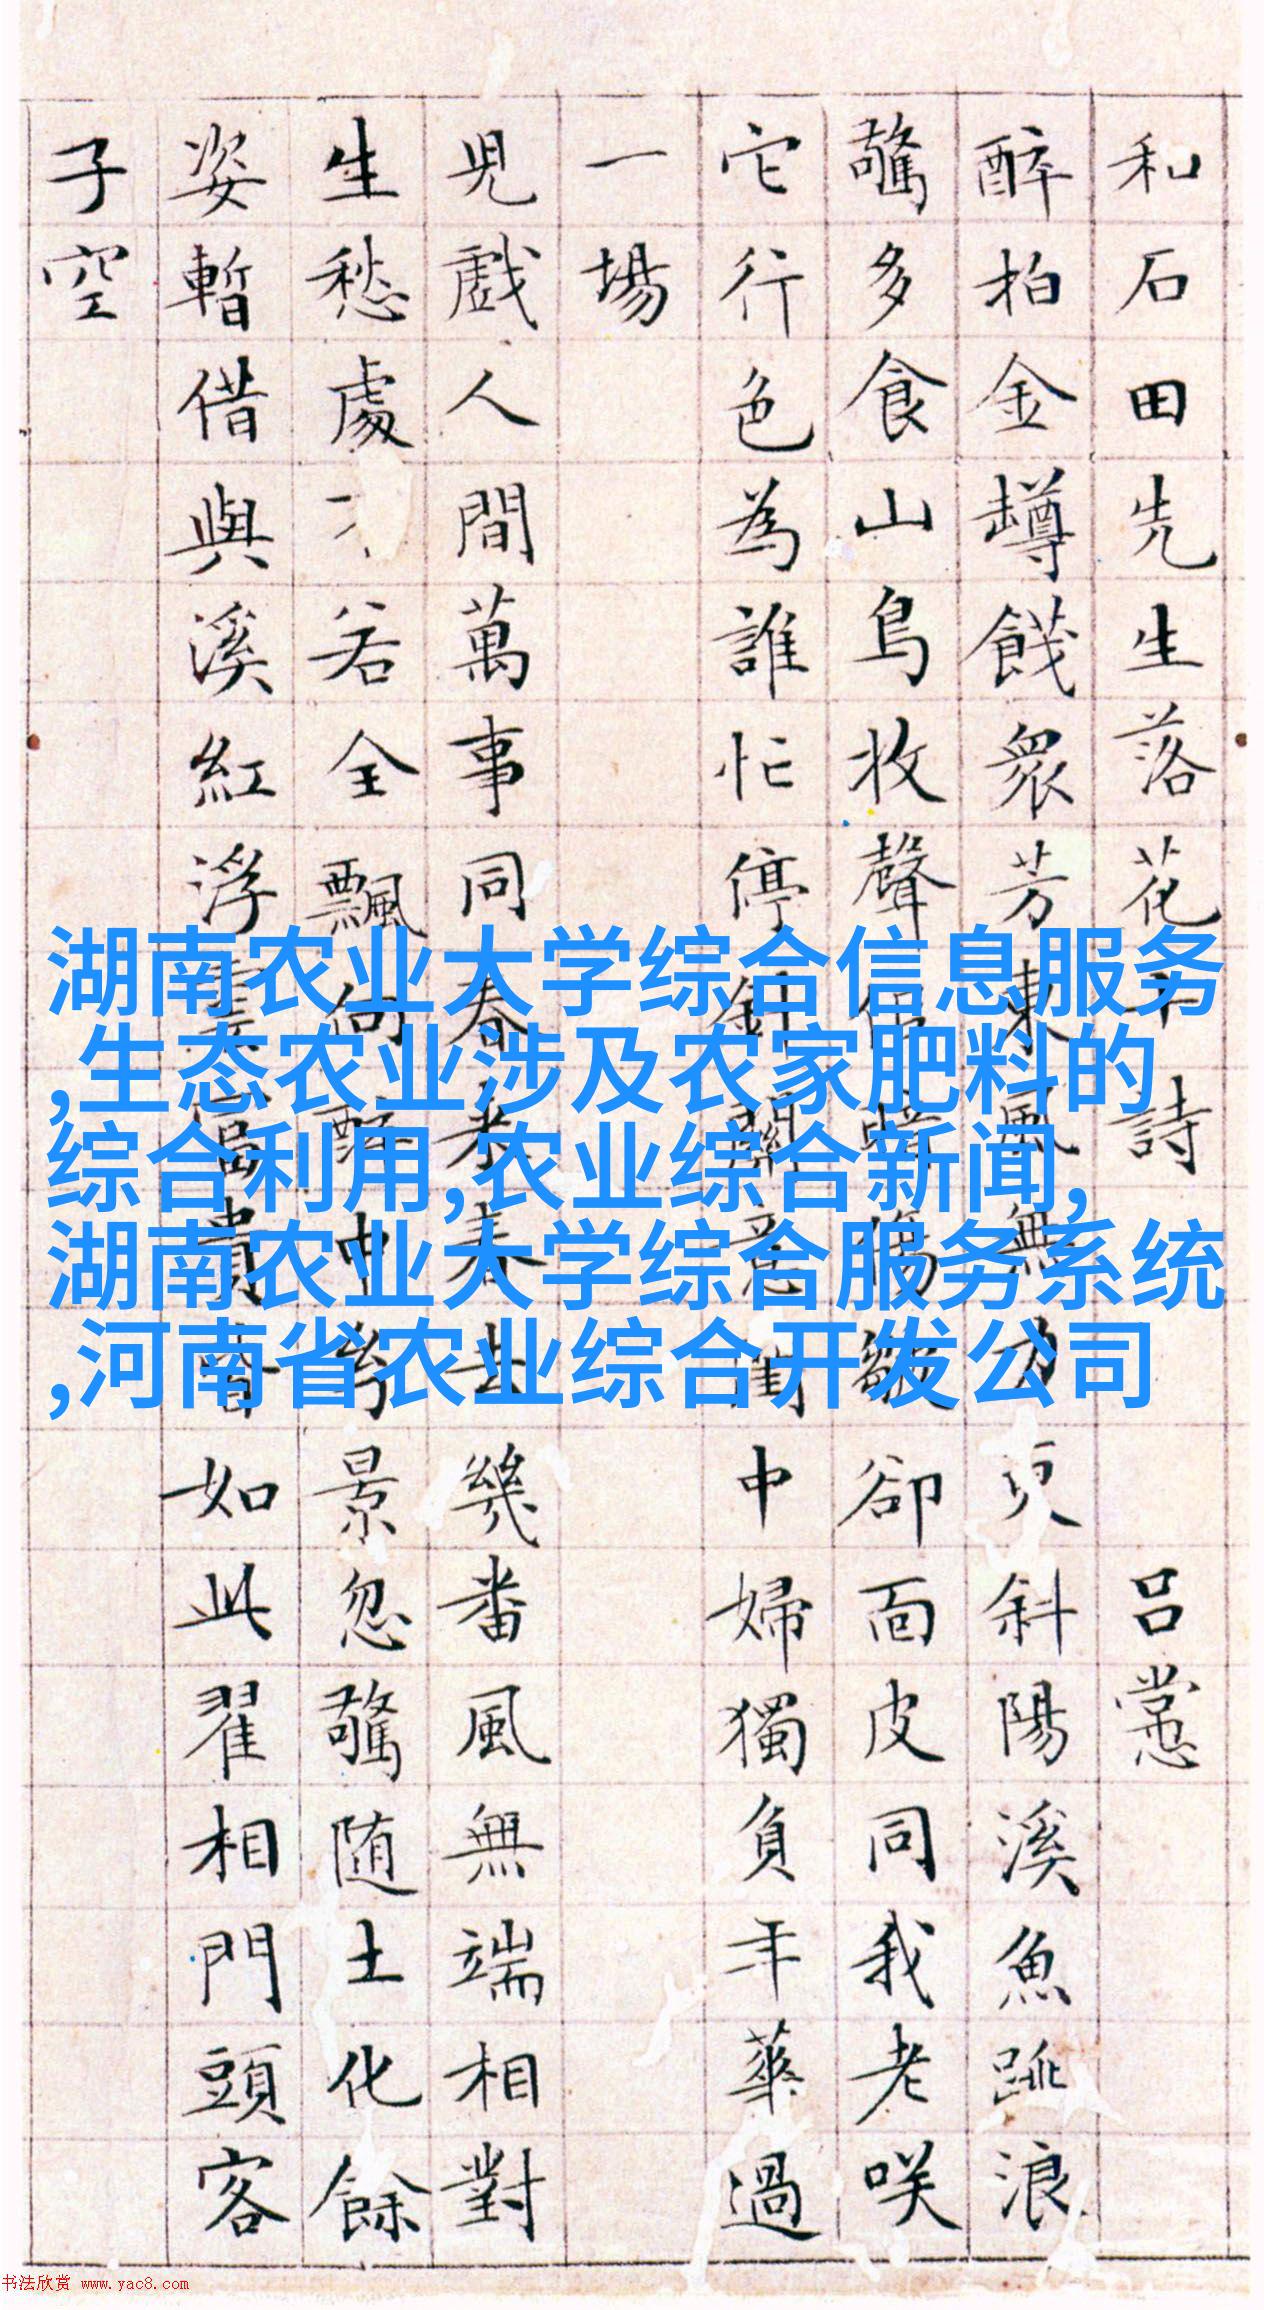 和石田先生落花十詩 呂
醉拍金罇餞衆芳東風無斜陽溪魚跳浪
驚多食山鳥收聲卻面皮同我老咲
它行色為誰忙停針意閨中婦獨負年華過
一場
兒戲人間萬事同春來春去幾番風無端相對
生愁處若全飄向中景忽驚随土化餘
姿暫借與溪紅浮雲富貴如此翟相門頭客
子空
湖南农业大学综合信息服务
,生态农业涉及农家肥料的
综合利用,农业综合新闻,
湖南农业大学综合服务系统
,河南省农业综合开发公司
书法欣赏 www.yac8.com